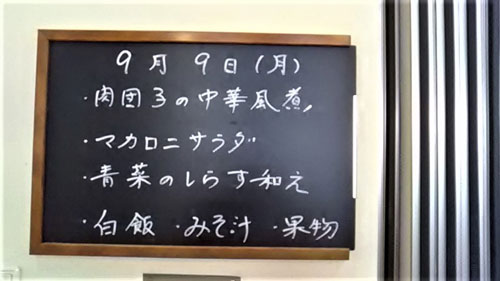 9月9日(月)
・肉団子の中華風煮
・マカロニサラダ
・青菜のしらす和え
・白飯 ・みそ汁 ・果物